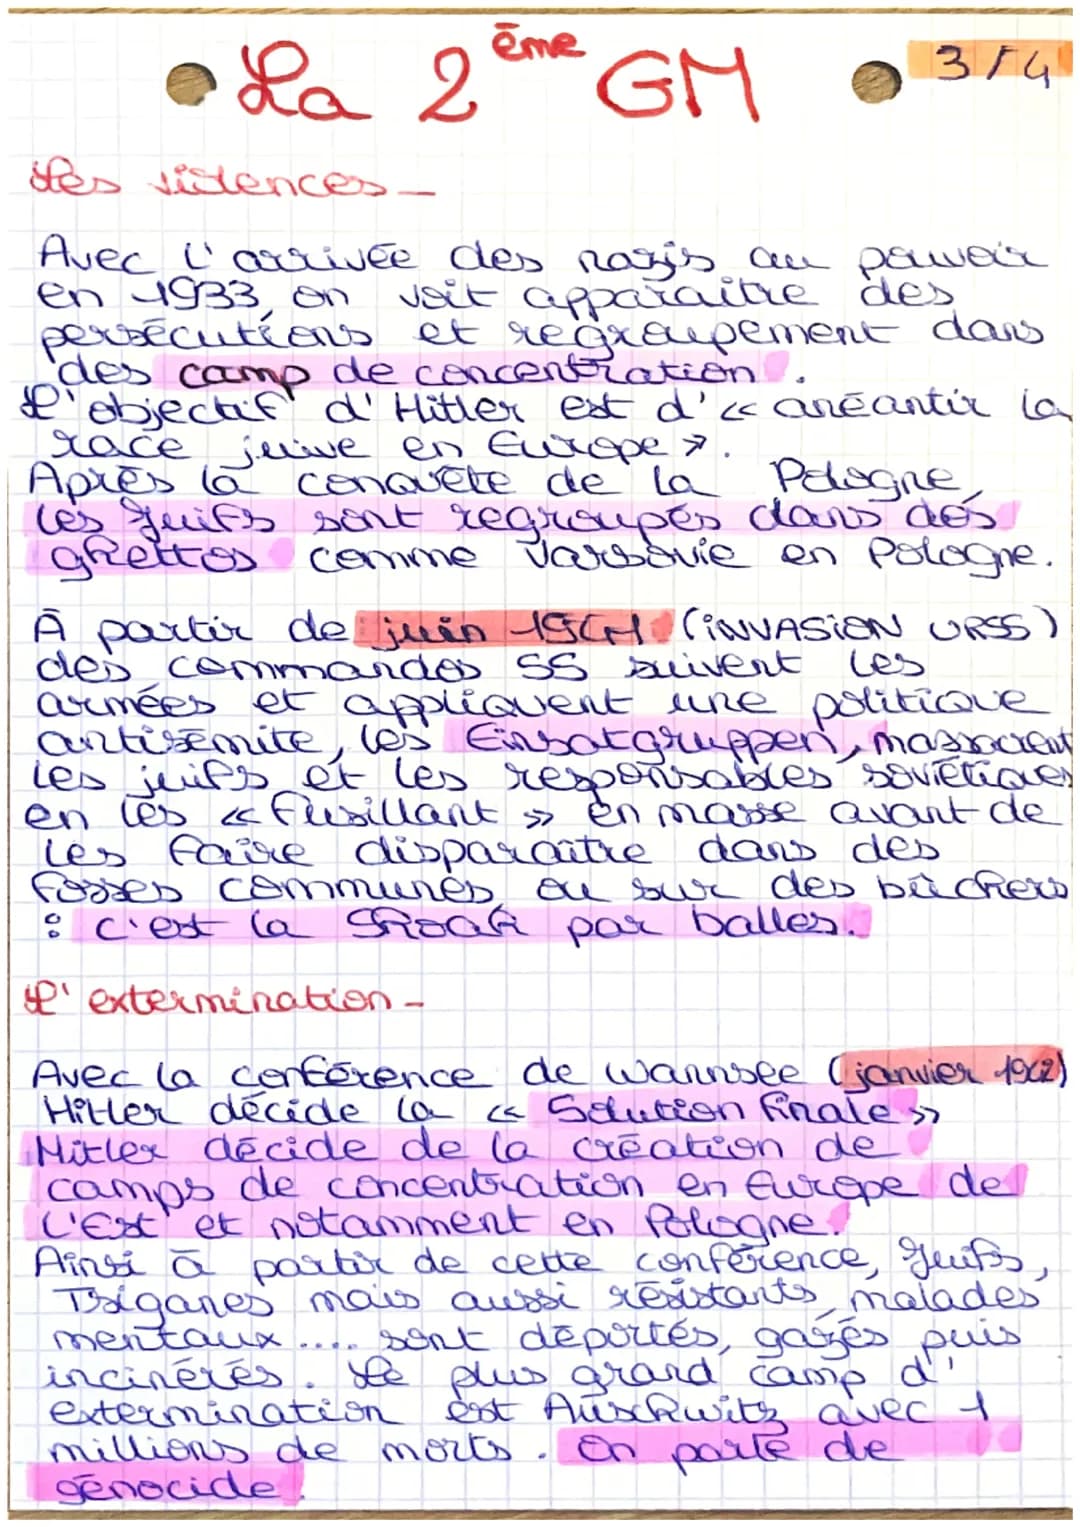 La 2ème GM
3/4
Les violences -
Avec l'arrivée des nazis au pouvoir
en 1933, on voit apparaître des
persécutions et regroupement dans
des camp de concentration.
L'objectif d'Hitler est d'« anéantir la
race juive en Europe ».
Après la conquête de la Pologne,
les Juifs sont regroupés dans des
ghettos comme Varsovie en Pologne.
À partir de juin 1941 (INVASION URSS)
des commandos SS suivent les
armées et appliquent une politique
antisémite, les Einsatgruppen, massacrent
les juifs et les responsables soviétiques
en les « fusillant » en masse avant de
les faire disparaître dans des
fosses communes, ou sur des bûchers
: c'est la Shoah par balles.
L'extermination -
Avec la conférence de Wannsee (janvier 1942)
Hitler décide la « Solution finale »
Hitler décide de la création de
camps de concentration en Europe de
l'Est et notamment en Pologne.
Ainsi à partir de cette conférence, Juifs,
Tsiganes mais aussi résistants, malades
mentaux .... sont déportés, gazés puis
incinérés. Le plus grand camp d'
extermination est Auschwitz avec 1
millions de morts. On parle de
génocide.